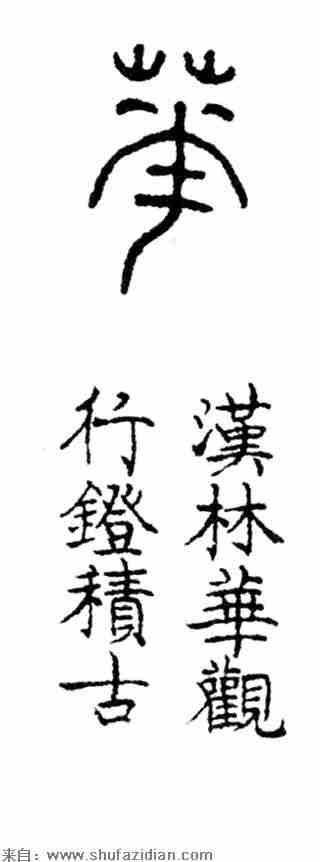 華
漢林華觀
行鐙積古
来自：www.shufazidian.com